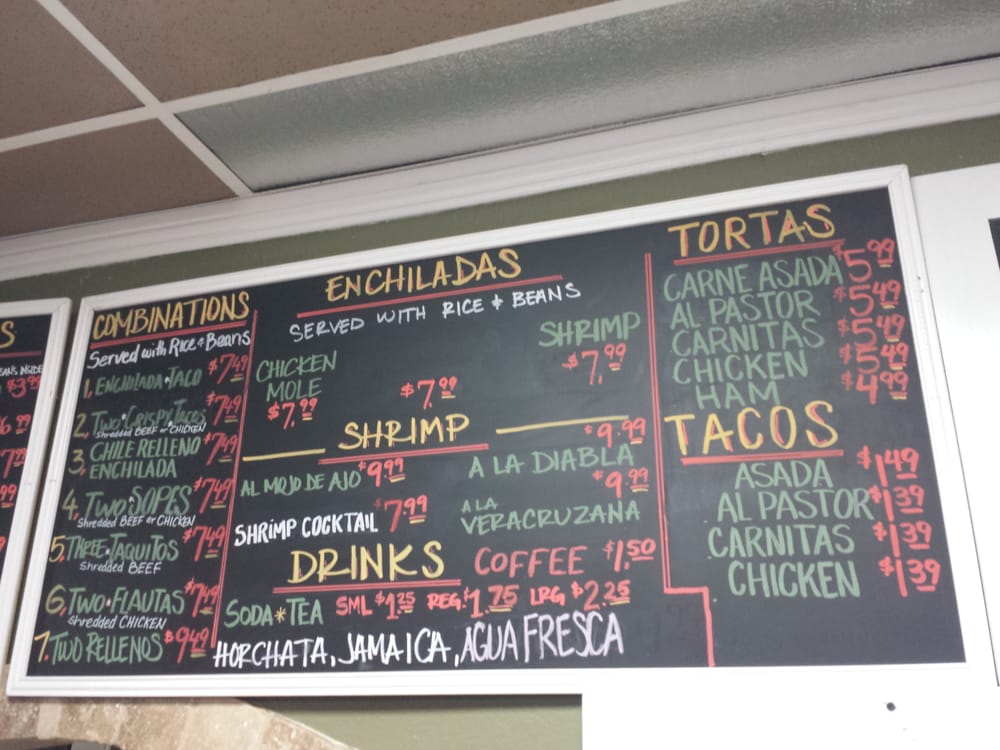 S
EANS INSIDE
$3.99
6.99
7.99
.99
COMBINATIONS
Served with Rice & Beans
1, ENCHILADA & TACO $7.49
2, TWO CRISPY TACOS $7.49
Shredded BEEF or CHICKEN
3, CHILE RELLENO $7.49
ENCHILADA
4, TWO SOPES $7.49
Shredded BEEF or CHICKEN
5, THREE TAQUITOS $7.49
Shredded BEEF
6, TWO FLAUTAS $7.49
Shredded CHICKEN
7. TWO RELLENOS $9.49
ENCHILADAS
SERVED WITH RICE & BEANS
CHICKEN
MOLE
$7.99
$7.99
SHRIMP
$7.99
SHRIMP
AL MOJO DE AJO $9.99
SHRIMP COCKTAIL $7.99
$9.99
A LA DIABLA
$9.99
A LA
VERACRUZANA
DRINKS
COFFEE $1.50
SODA * TEA SML $1.25 REG. $1.75 LRG $2.25
HORCHATA, JAMAICA, AGUA FRESCA
TORTAS
CARNE ASADA $5.99
AL PASTOR $5.49
CARNITAS $5.49
CHICKEN $5.49
HAM $4.99
TACOS
ASADA $1.49
AL PASTOR $1.39
CARNITAS $1.39
CHICKEN $1.39